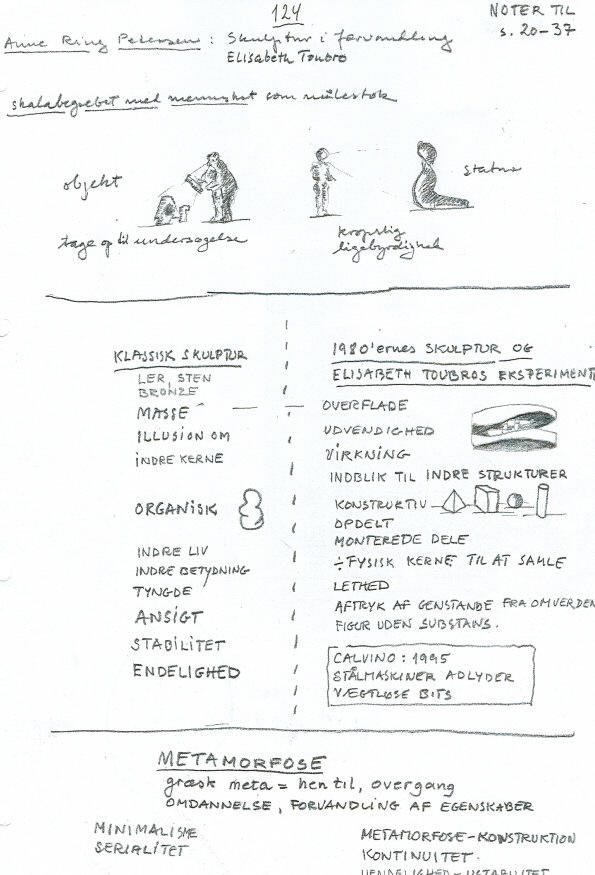 124
NOTER TIL
s. 20-37
Anne Ring Petersen: Skulptur i forvandling
Elisabeth Toubro
skalabegrebet med mennesket som målestok
objekt
statue
tage op til undersøgelse
kropslig
ligebyrdighed
KLASSISK SKULPTUR
LER, STEN
BRONZE
MASSE
ILLUSION OM
INDRE KERNE
ORGANISK
INDRE LIV
INDRE BETYDNING
TYNGDE
ANSIGT
STABILITET
ENDELIGHED
1980'ernes SKULPTUR OG
ELISABETH TOUBROS EKSPERIMENT
OVERFLADE
UDVENDIGHED
VIRKNING
INDBLIK TIL INDRE STRUKTURER
KONSTRUKTIV
OPDELT
MONTEREDE DELE
÷ FYSISK KERNE TIL AT SAMLE
LETHED
AFTRYK AF GENSTANDE FRA OMVERDEN
FIGUR UDEN SUBSTANS.
CALVINO: 1995
STÅLMASKINER ADLYDER
VÆGTLØSE BITS
METAMORFOSE
græsk meta = hen til, overgang
OMDANNELSE, FORVANDLING AF EGENSKABER
MINIMALISME
SERIALITET
METAMORFOSE-KONSTRUKTION
KONTINUITET.